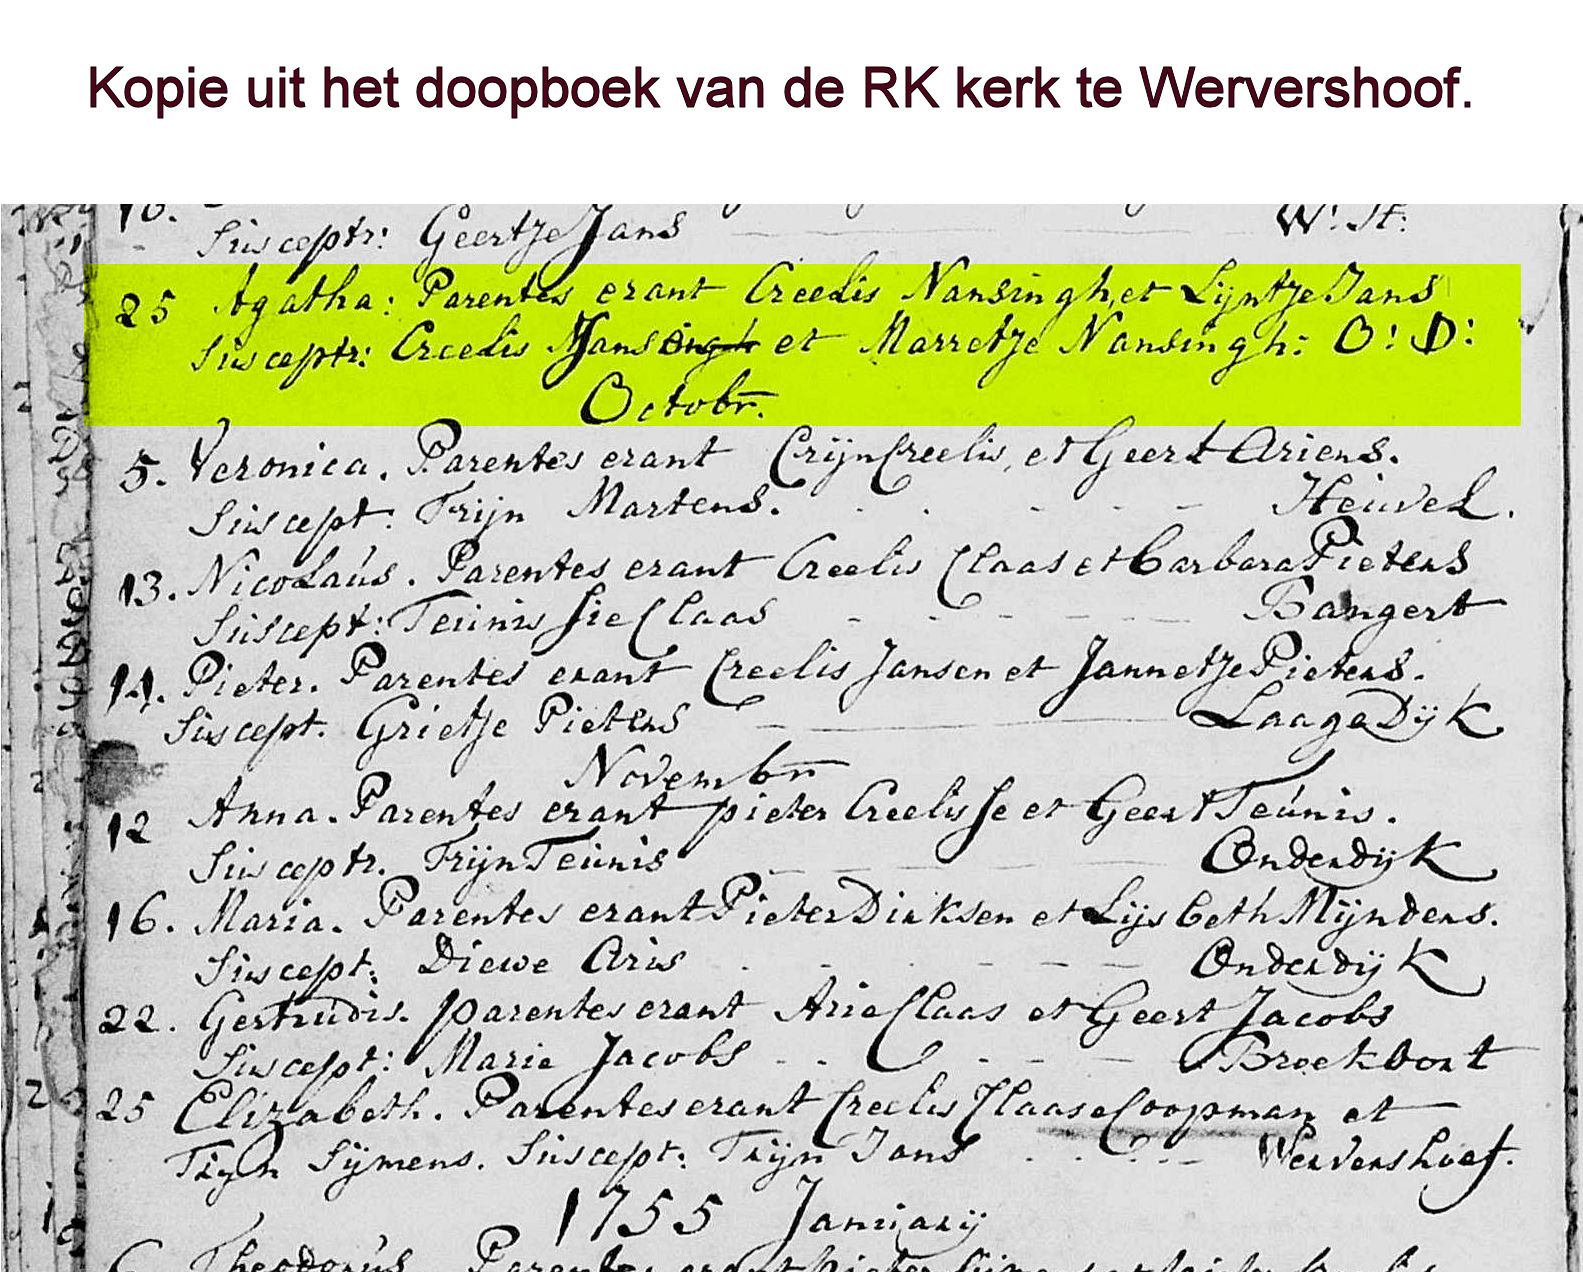 Kopie uit het doopboek van de RK kerk te Wervershoof.
W: St:
Susceptr: Geertje Jans
25 Agatha: Parentes erant Creelis Nansingh, et Lijntje Jans
Susceptr: Creelis Jans et Marretje Nansingh: O: D:
Octobr.
5. Veronica. Parentes erant Crijn Creelis, et Geert Ariens.
Suscept: Trijn Martens. Heuvel.
13. Nicolaus. Parentes erant Creelis Claas et Barbara Pieters
Suscept: Teunis Sie Claas Bangert
14. Pieter. Parentes erant Creelis Jansen et Jannetje Pieters.
Suscept. Grietje Pieters Laage Dijk
Novembr
12 Anna. Parentes erant pieter Creelisse et Geert Teunis.
Susceptr. Trijn Teunis Onderdijk
16. Maria. Parentes erant Pieter Dirksen et Lijsbeth Mijnders.
Suscept: Diewe Aris Onderdijk
22. Gertrudis. parentes erant Arie Claas et Geert Jacobs
Suscept: Marie Jacobs Broekoort
25 Elizabeth. Parentes erant Creelis Claase Coopman et
Trijn Sijmens. Suscept: Trijn Jans Wervershoef.
1755 Januarij
6 Theodorus. Parentes erant pieter